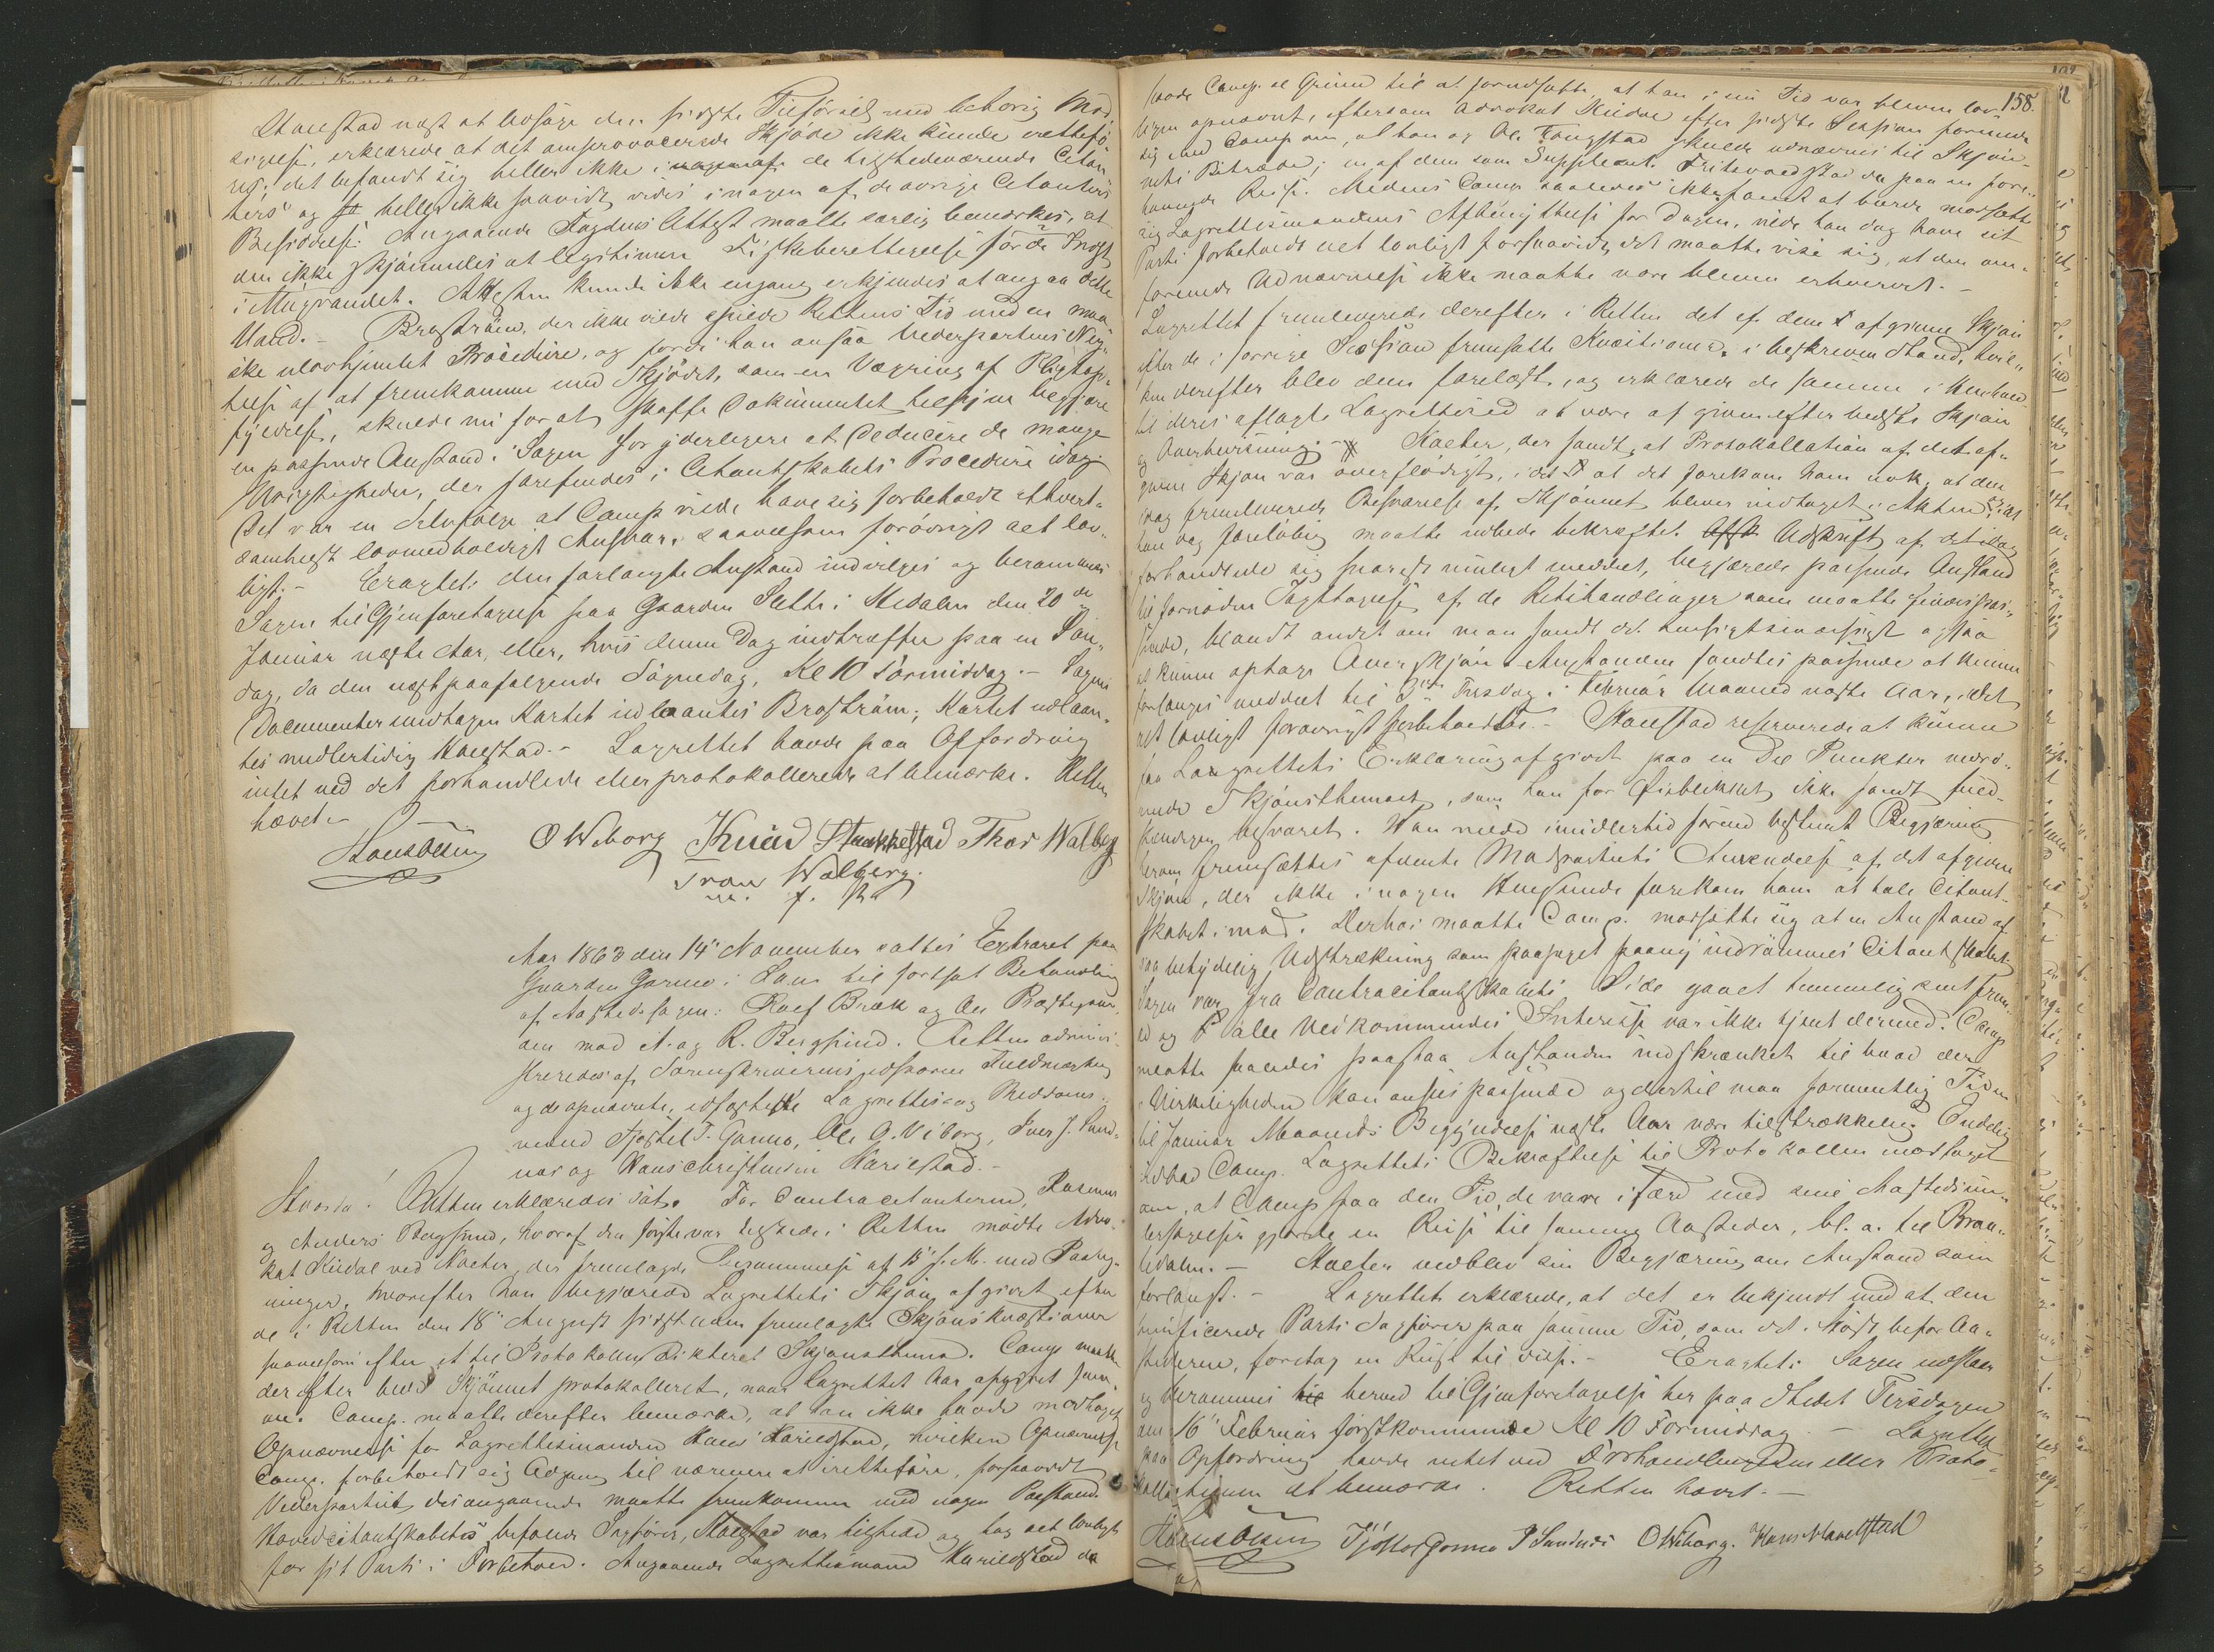 Staelstad næst at besøge den sidste Tilførsel med behørig Mod-
sigelse, erklærede at det omprovocerede Skjøde ikke kunde rettefø-
res; det befandt sig heller ikke i de tilstedeværende Citan-
ters og heller ikke saavidt vides i nogen af de øvrige Citanters
Besiddelse. Angaaende Fogdens Attest maatte særlig bemærkes, at
den ikke skjønnedes at legitimere Fiskeberettigelse for de
i Attesten kunde ikke engang erkjendes at angaa dette
Vand. - Brostrøm, der ikke vilde spilde Rettens Tid med en
ulovhjemlet Procedure, og fordi han ansaa Vederpartens Næg-
telse af at fremkomme med Skjødet, som en Vægring af Pligtop-
fyldelse, skulde nu for at skaffe Dokumentet tilveie begjære
en passende Anstand i Sagen for yderligere at deducere de mange
Urigtigheder, der forefindes i Citantskabets Procedure idag.
Det var en Selvfølge at Camp vilde have sig forbeholdt ethvert-
somhelst lovmedholdigt Ansvar, saavelsom forøvrigt alt lov-
ligt. - Eragtet: den forlangte Anstand indvilges og berammes
Sagen til Gjenforetagelse paa Gaarden Sletti i Hedalen den 20de
Januar næste Aar, eller, hvis denne Dag indtræffer paa en Søn-
dag, da den næstpaafølgende Søgnedag, Kl 10 Formiddag. - Sagens
Documenter undtagen Kartet udlaantes Brostrøm; Kartet udlaan-
tes midlertidig Staelstad. - Lagrettet havde paa Opfordring
intet ved det forhandlede eller protokollerede at bemærke. Retten
hævet. -
O Wiborg Knud Strøkkestad Thor Walberg
Walberg.
m. f. P.
Aar 1863 den 14de November sattes Extraret paa
Gaarden Garmo i Lom til fortsat Behandling
af Aastedssagen: Roef Bræk og Ole Præstegaar-
den mod A. og R. Bergsund. Retten admini-
streredes af Sorenskriverens edsvorne Fuldmægtig
og de opnævnte, edfæstede Lagrettes- og Meddoms-
mænd Tjøstel T. Garmo, Ole O. Viborg, Iver J. Sund-
nes og Hans Christensen Harildstad. -
Hvorda! Retten erklæredes sat. For Contracitanterne, Rasmus
og Anders Bergsund, hvoraf den første var tilstede i Retten mødte Advo-
kat Kildal ved Kaeter, der fremlagde Berammelse af 15de f. M. med Paateg-
ninger, hvorefter han begjærede Lagrettets Skjøn afgivet efter
de i Retten den 18de August sidstleden fremlagte Skjønsquæstioner
saavelsom efter et til Protokollen dikteret Skjønsthema. Camp maatte
derefter bede Skjønnet protokolleret, naar Lagrettet har afgivet sam-
me. Camp. maatte derefter bemærke, at han ikke havde modtaget
Opnævnelse for Lagrettesmanden Hans Harildstad, hvilken Opnævnelse
Camp. forbeholdt sig Adgang til nærmere at iretteføre, forsaavidt
Vederpartiet desangaaende maatte fremkomme med nogen Paastand.
Hovedcitantskabets befalede Sagfører, Staelstad var tilstede og tog alt lovligt
for sit Parti i Forbehold. Angaaende Lagrettesmand Harildstad da
158.
havde Camp. al Grund til at forudsætte, at han i sin Tid var bleven lov-
ligen opnævnt, eftersom Advokat Kildal efter sidste Session forenede
sig med Camp om, at han og Ole Fougstad skulde udnævnes til Skjøn-
nets Betræde; en af dem som Suppleant. Fritsvoldstad da paa en fore-
havende Reise. Medens Camp saaledes ikke fandt at burde modsætte
sig Lagrettesmandens Afbenyttelse for Dagen, vilde han dog have sit
Parti forbeholdt alt lovligt forsaavidt det maatte vise sig, at den om-
førende Udnævnelse ikke maatte være bleven erhvervet. -
Lagrettet fremleverede derefter i Retten det af dem afgivne Skjøn
efter de i forrige Session fremsatte Kvæstioner, i beskreven Stand, hvil-
ken derefter blev dem forelæst, og erklærede de samme i Henhold
til deres aflagte Lagrettesed at være afgiven efter bedste Skjøn
og Overbevisning. - Kaeter, der fandt, at Protokollation af det af-
givne Skjøn var overflødigt, idet at det forekom ham nok, at den
idag fremleverede Besvarelse af Skjønnet bliver indtaget i Akten, at
han dog foreløbig maatte udbede bekræftet Udskrift af det idag
forhandlede sig snarest muligt meddelt, begjærede passende Anstand
til fornøden Iagttagelse af de Retshandlinger som maatte
, blandt andet om man fandt det hensigtsmæssigt ogsaa
at kunne optage Overskjøn. Anstanden fandtes passende at kunne
forlanges meddelt til 3die Tirsdag i Februar Maaned næste Aar, idet
alt lovligt forøvrigt forbeholdtes. - Staelstad reserverede at kunne
faa Lagrettets Erklæring afgivet paa en Del Punkter vedrø-
rende Skjønsthemaet, som han for Øieblikket ikke fandt fuld-
stændigen besvaret. Han vilde imidlertid førend bestemt Begjæring
herom fremsættes afvente Modpartiets Anvendelse af det afgivne
Skjøn, der ikke i nogen Henseende forekom ham at tale Citant-
skabet imod. Derhos maatte Camp. modsætte sig at en Anstand af
saa betydelig Udstrækning som paaseget paany indrømmes Citantskabet
Sagen var fra Contracitantskabets Side gaaet temmelig sent frem-
ad og alle Vedkommendes Interesse var ikke tjent dermed. Camp
maatte saaledes paastaa Anstanden indskrænket til hvad der
i Virkeligheden kan ansees passende og dertil maa formentlig Tiden
til Januar Maaneds Begyndelse næste Aar være tilstrækkelig. Endelig
udbad Camp. Lagrettets Bekræftelse til Protokollen modtaget
om, at Camp paa den Tid, de vare ifærd med sine Aastedsun-
dersøgelser gjorde en Reise til samme Aasteder, bl. a. til Braa-
tedalen. - Kaeter vedblev sin Begjæring om Anstand som
forlangt. - Lagrettet erklærede, at det er bekjendt med at den
benificerede Parts Sagfører paa samme Tid, som det i Høst befor Aa-
stederne, foretog en Reise til disse. - Eragtet: Sagen udstaar
og berammes herved til Gjenforetagelse her paa Stedet Tirsdagen
den 16de Februar førstkommende Kl 10 Formiddag. - Lagrettet
paa Opfordring havde intet ved Forhandlingen eller Proto-
kollationen at bemærke. Retten hævet. -
Tjøstel Garmo I Sundnes O Wiborg. Hans Harildstad